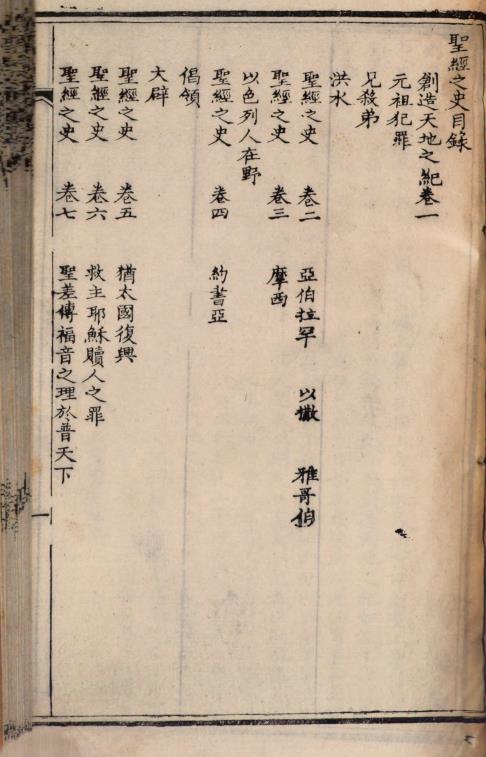 聖經之史目錄
創造天地之紀卷一
元祖犯罪
兄殺弟
洪水
聖經之史 卷二 亞伯拉罕 以撒 雅哥伯
聖經之史 卷三 摩西
以色列人在野
聖經之史 卷四 約書亞
倡領
大辟
聖經之史 卷五 猶太國復興
聖經之史 卷六 救主耶穌贖人之罪
聖經之史 卷七 聖差傳福音之理於普天下